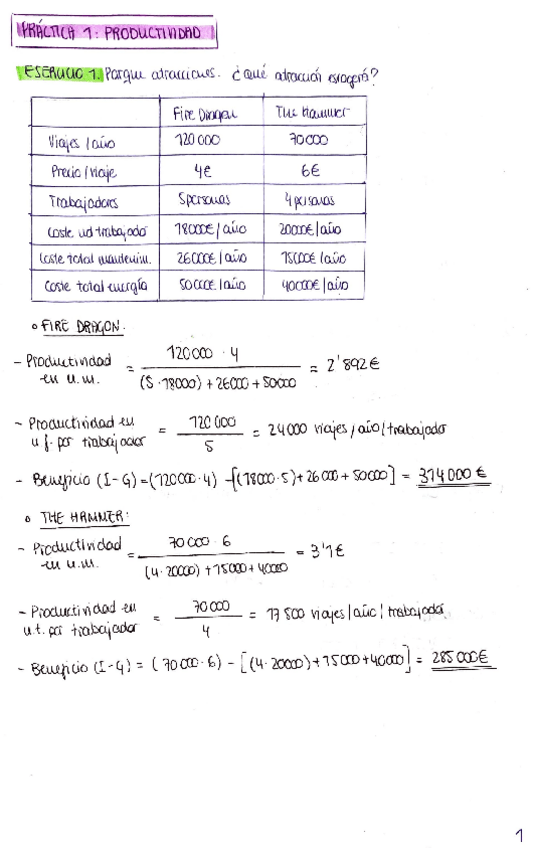 PRÁCTICA 1: PRODUCTIVIDAD
EJERCICIO 1. Parque atracciones. ¿Qué atracción escogerá?
Fire Dragon The Hammer
Viajes/año 120000 70000
Precio/viaje 4€ 6€
Trabajadores 5personas 4personas
Coste ud trabajado 18000€/año 20000€/año
Coste total mantenim. 26000€/año 15000€/año
Coste total energía 50000€/año 40000€/año
∘ FIRE DRAGON.
- Productividad en u.m. = 120000 · 4 / (5 · 18000) + 26000 + 50000 = 2'892€
- Productividad en u.f. por trabajador = 120000 / 5 = 24000 viajes/año/trabajador
- Beneficio (I-G) = (120000 · 4) - [(18000 · 5) + 26000 + 50000] = 314000€
∘ THE HAMMER:
- Productividad en u.m. = 70000 · 6 / (4 · 20000) + 15000 + 40000 = 3'1€
- Productividad en u.f. por trabajador = 70000 / 4 = 17500 viajes/año/trabajador
- Beneficio (I-G) = (70000 · 6) - [(4 · 20000) + 15000 + 40000] = 285000€
1